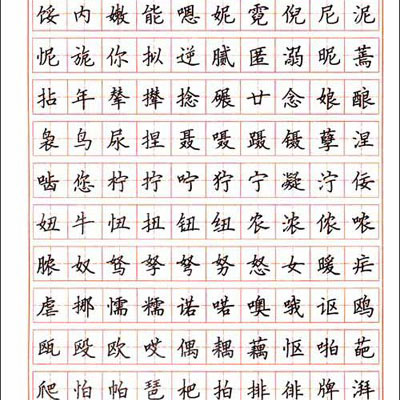 馁内嫩能嗯妮霓倪尼泥
怩旎你拟逆腻匿溺昵蔫
拈年辇撵捻碾廿念娘酿
袅鸟尿捏聂嗫蹑镊孽涅
啮您柠拧咛狞宁凝泞佞
妞牛忸扭钮纽农浓侬哝
脓奴驽孥弩努怒女暖疟
虐挪懦糯诺喏噢哦讴鸥
瓯殴欧偶耦藕怄啪葩
爬怕帕琶杷拍排徘牌湃